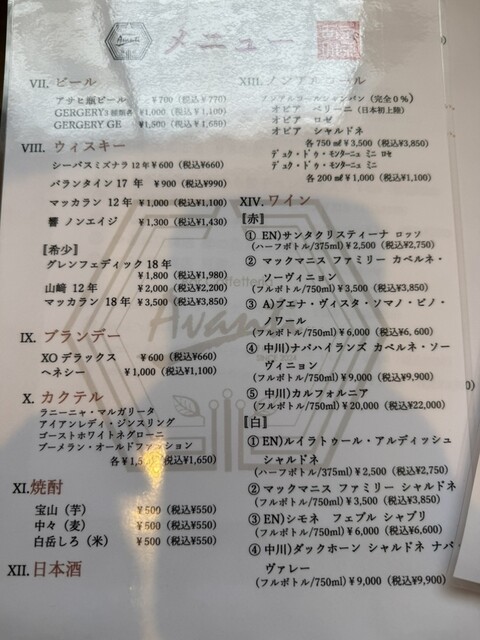 Avanti
メニュー
VII. ビール
アサヒ瓶ビール ¥700(税込¥770)
GERGERY3種類各 ¥1,000(税込¥1,100)
GERGERY GE ¥1,500(税込¥1,650)
VIII. ウィスキー
シーバスミズナラ12年¥600(税込¥660)
バランタイン17 年 ¥900(税込¥990)
マッカラン 12年 ¥1,000(税込¥1,100)
響 ノンエイジ ¥1,300(税込¥1,430)
〚希少〛
グレンフェディック18年
¥1,800(税込¥1,980)
山崎 12年 ¥2,000(税込¥2,200)
マッカラン 18年 ¥3,500(税込¥3,850)
IX. ブランデー
XOデラックス ¥600(税込¥660)
ヘネシー ¥1,000(税込¥1,100)
X. カクテル
ラニーニャ・マルガリータ
アイアンレディ・ジンスリング
ゴーストホワイトネグローニ
ブーメラン・オールドファッション
各¥1,500(税込¥1,650)
XI.焼酎
宝山(芋) ¥500(税込¥550)
中々(麦) ¥500(税込¥550)
白岳しろ(米) ¥500(税込¥550)
XII.日本酒
XIII.ノンアルコール
ノンアルコールシャンパン(完全0%)
オピア ベリーニ(日本初上陸)
オピア ロゼ
オピア シャルドネ
各 750㎖ ¥3,500(税込¥3,850)
デュク・ドゥ・モンターニュ ミニ ロゼ
デュク・ドゥ・モンターニュ ミニ
各 200㎖ ¥1,000(税込¥1,100)
XIV.ワイン
[赤]
① EN)サンタクリスティーナ ロッソ
(ハーフボトル/375ml)¥2,500(税込¥2,750)
② マックマニス ファミリー カベルネ・
ソーヴィニョン
(フルボトル/750ml)¥3,500(税込¥3,850)
③ A)ブエナ・ヴィスタ・ソマノ・ピノ・
ノワール
(フルボトル/750ml)¥6,000(税込¥6,600)
④ 中川)ナパハイランズ カベルネ・ソー
ヴィニョン
(フルボトル/750ml)¥9,000(税込¥9,900)
⑤ 中川)カルフォルニア
(フルボトル/750ml)¥20,000(税込¥22,000)
[白]
①EN)ルイラトゥール・アルディッシュ
シャルドネ
(ハーフボトル/375ml)¥2,500(税込¥2,750)
②マックマニス ファミリー シャルドネ
(フルボトル/750ml)¥3,500(税込¥3,850)
③EN)シモネ フェブル シャブリ
(フルボトル/750ml)¥6,000(税込¥6,600)
④中川)ダックホーン シャルドネ ナパ・
ヴァレー
(フルボトル/750ml)¥9,000(税込¥9,900)
Avanti